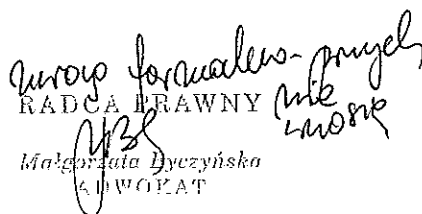 uwag formalno-prawnych
nie
wnoszę
RADCA PRAWNY
Małgorzata Dyczyńska
ADWOKAT